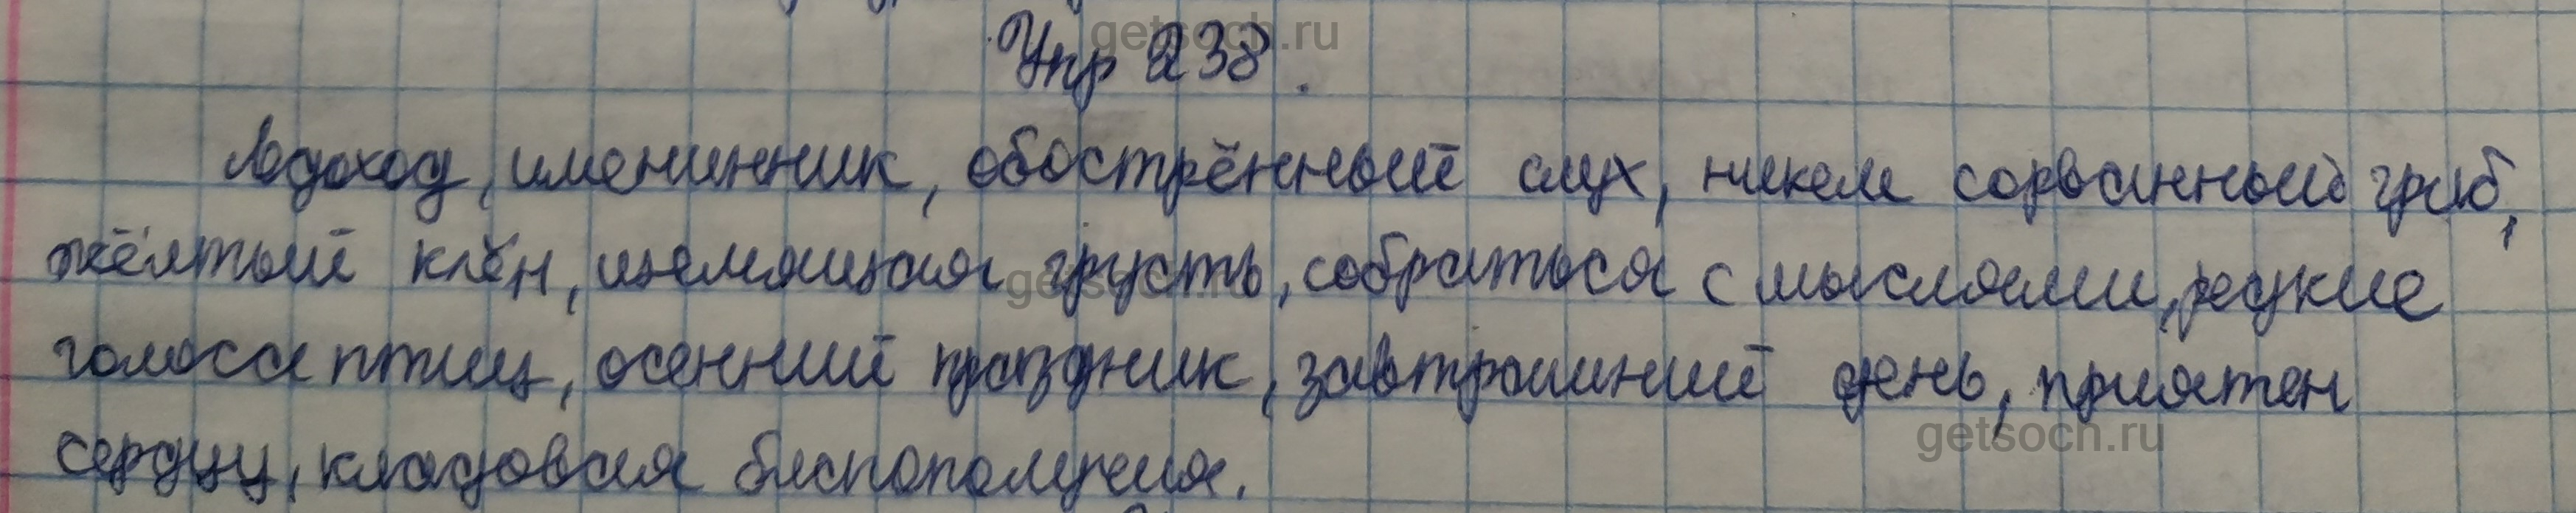 Упр 238.
Ледоход, именинник, обострённый слух, никем сорванный гриб,
жёлтый клён, щемящая грусть, собраться с мыслями, редкие
голоса птиц, осенний праздник, завтрашний день, приятен
сердцу, кладовая
getsoch.ru
getsoch.ru
getsoch.ru